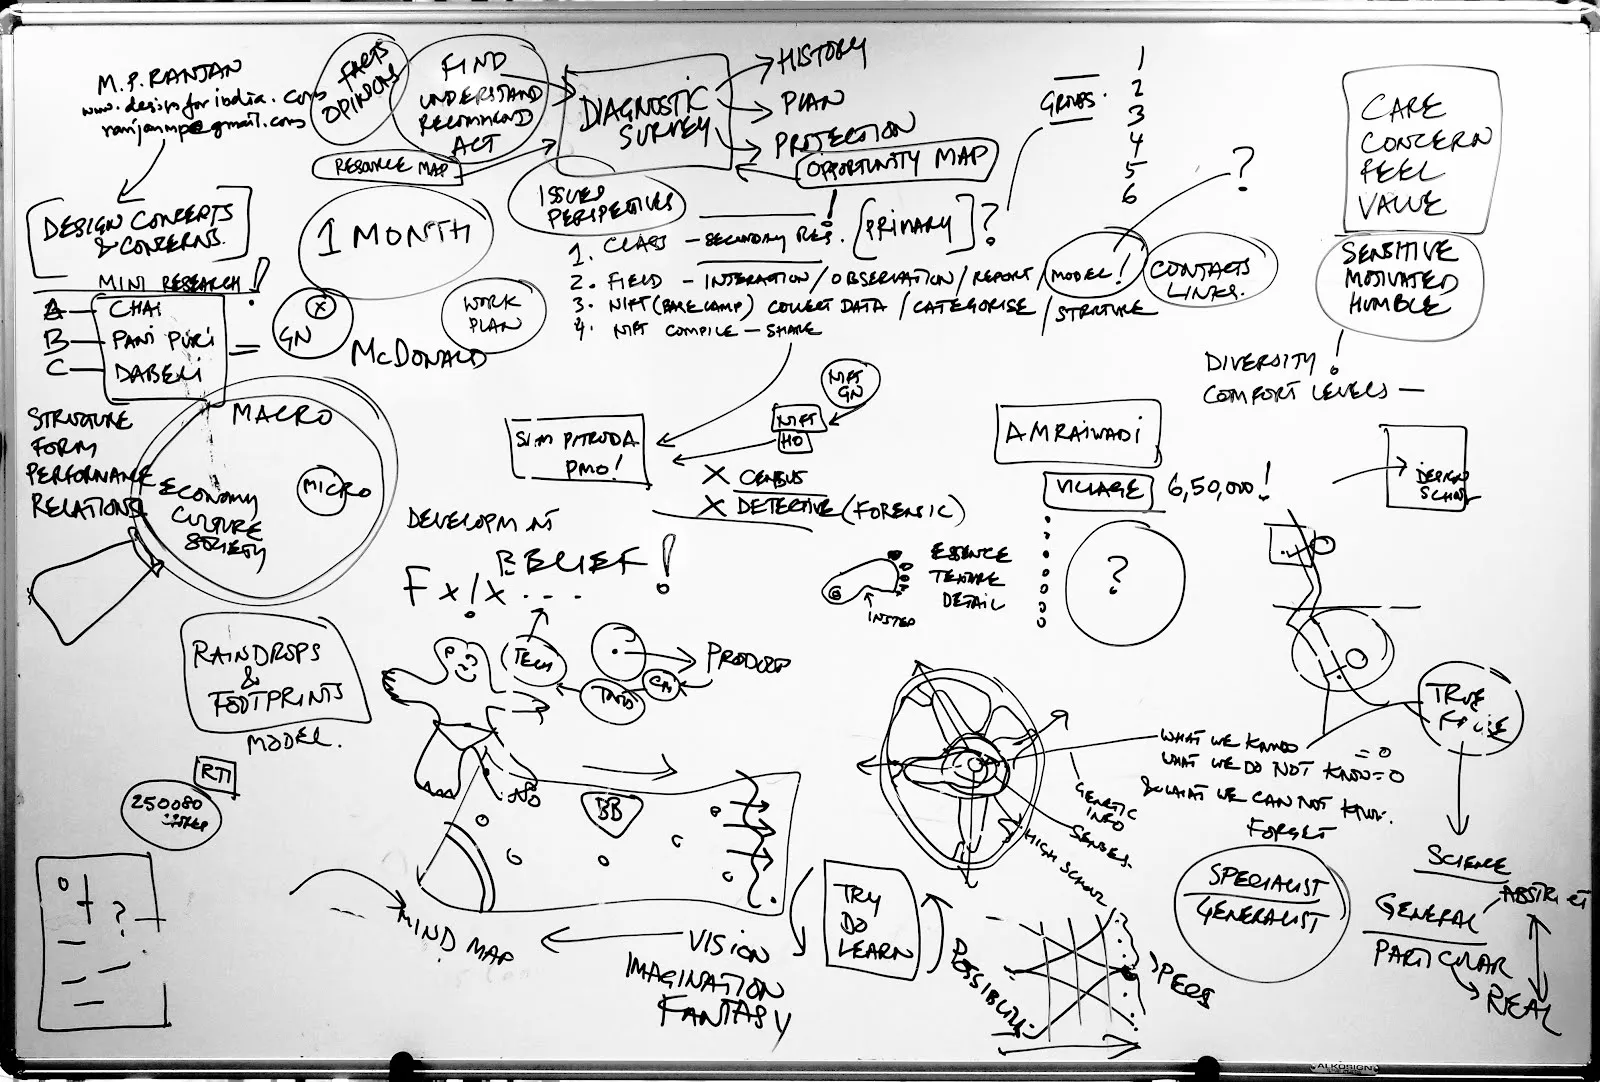 M.P. RANJAN
www.designforindia.com
ranjanmp@gmail.com
FACTS
OPINIONS
FIND
UNDERSTAND
RECOMMEND
ACT
RESOURCE MAP
DIAGNOSTIC
SURVEY
HISTORY
PLAN
PROTECTION
OPPORTUNITY MAP
ISSUES
PERSPECTIVES
GROUPS.
1
2
3
4
5
6
?
CARE
CONCERN
FEEL
VALUE
SENSITIVE
MOTIVATED
HUMBLE
!
DIVERSITY
COMFORT LEVELS —
DESIGN CONCEPTS
& CONCERNS.
MINI RESEARCH!
A — CHAI
B — PANI PURI
C — DABELI
=
GN
X
McDONALD
1 MONTH
WORK
PLAN
!
1. CLASS — SECONDARY RES. [PRIMARY]?
2. FIELD — INTERACTION / OBSERVATION / REPORT / MODEL!
3. NIFT (BARE CAMP) COLLECT DATA / CATEGORISE / STRUTURE
4. NIFT COMPILE — SHARE
CONTACTS
LINKS.
STRUTURE
FORM
PERFORMANCE
RELATIONS
MACRO
MICRO
ECONOMY
CULTURE
SOCIETY
SAM PITRODA
PMO!
NIFT
GN
NIFT
HO
X CENSUS
X DETECTIVE (FORENSIC)
AMRAIWADI
VILLAGE 6,50,000!
?
DESIGN
SCHOOL
DEVELOPMENT
BELIEF!
F X!X . . .
ESSENCE
DETAIL
INSTEP
RAINDROPS
&
FOOTPRINTS
MODEL.
TECH
PRODUCT
RTI
250080
BB
MIND MAP
VISION
IMAGINATION
FANTASY
TRY
DO
LEARN
GENETIC
INFO
SENSES.
HIGH SCHOOL
WHAT WE KNOW = 0
WHAT WE DO NOT KNOW = 0
& WHAT WE CAN NOT KNOW.
FORGET
TRUE
FALSE
SCIENCE
GENERAL
ABSTRACT
PARTICULAR
REAL
SPECIALIST
GENERALIST
?
ALKOSIGN